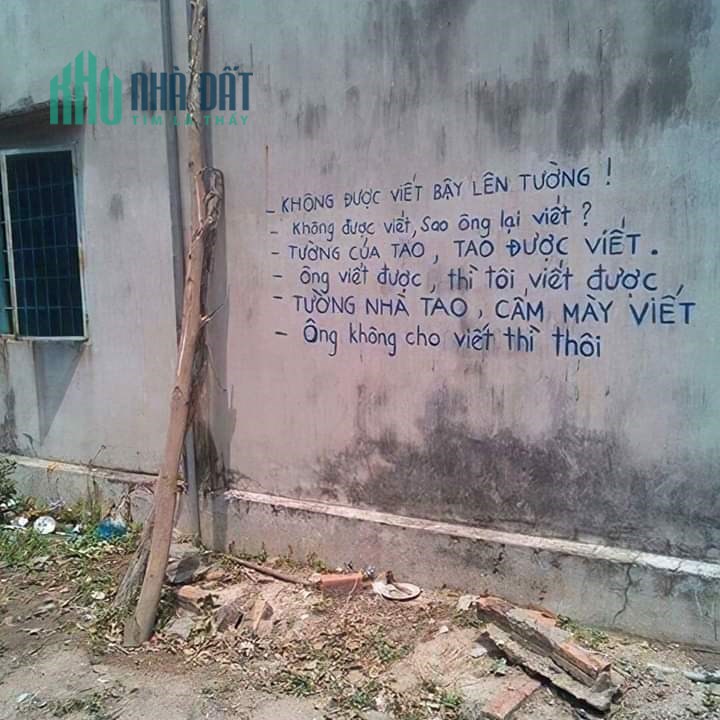 KHO NHÀ ĐẤT
TÌM LÀ THẤY
- KHÔNG ĐƯỢC VIẾT BẬY LÊN TƯỜNG !
- Không được viết, Sao ông lại viết ?
- TƯỜNG CỦA TAO, TAO ĐƯỢC VIẾT.
- ông viết được, thì tôi viết được
- TƯỜNG NHÀ TAO, CẤM MÀY VIẾT
- Ông không cho viết thì thôi